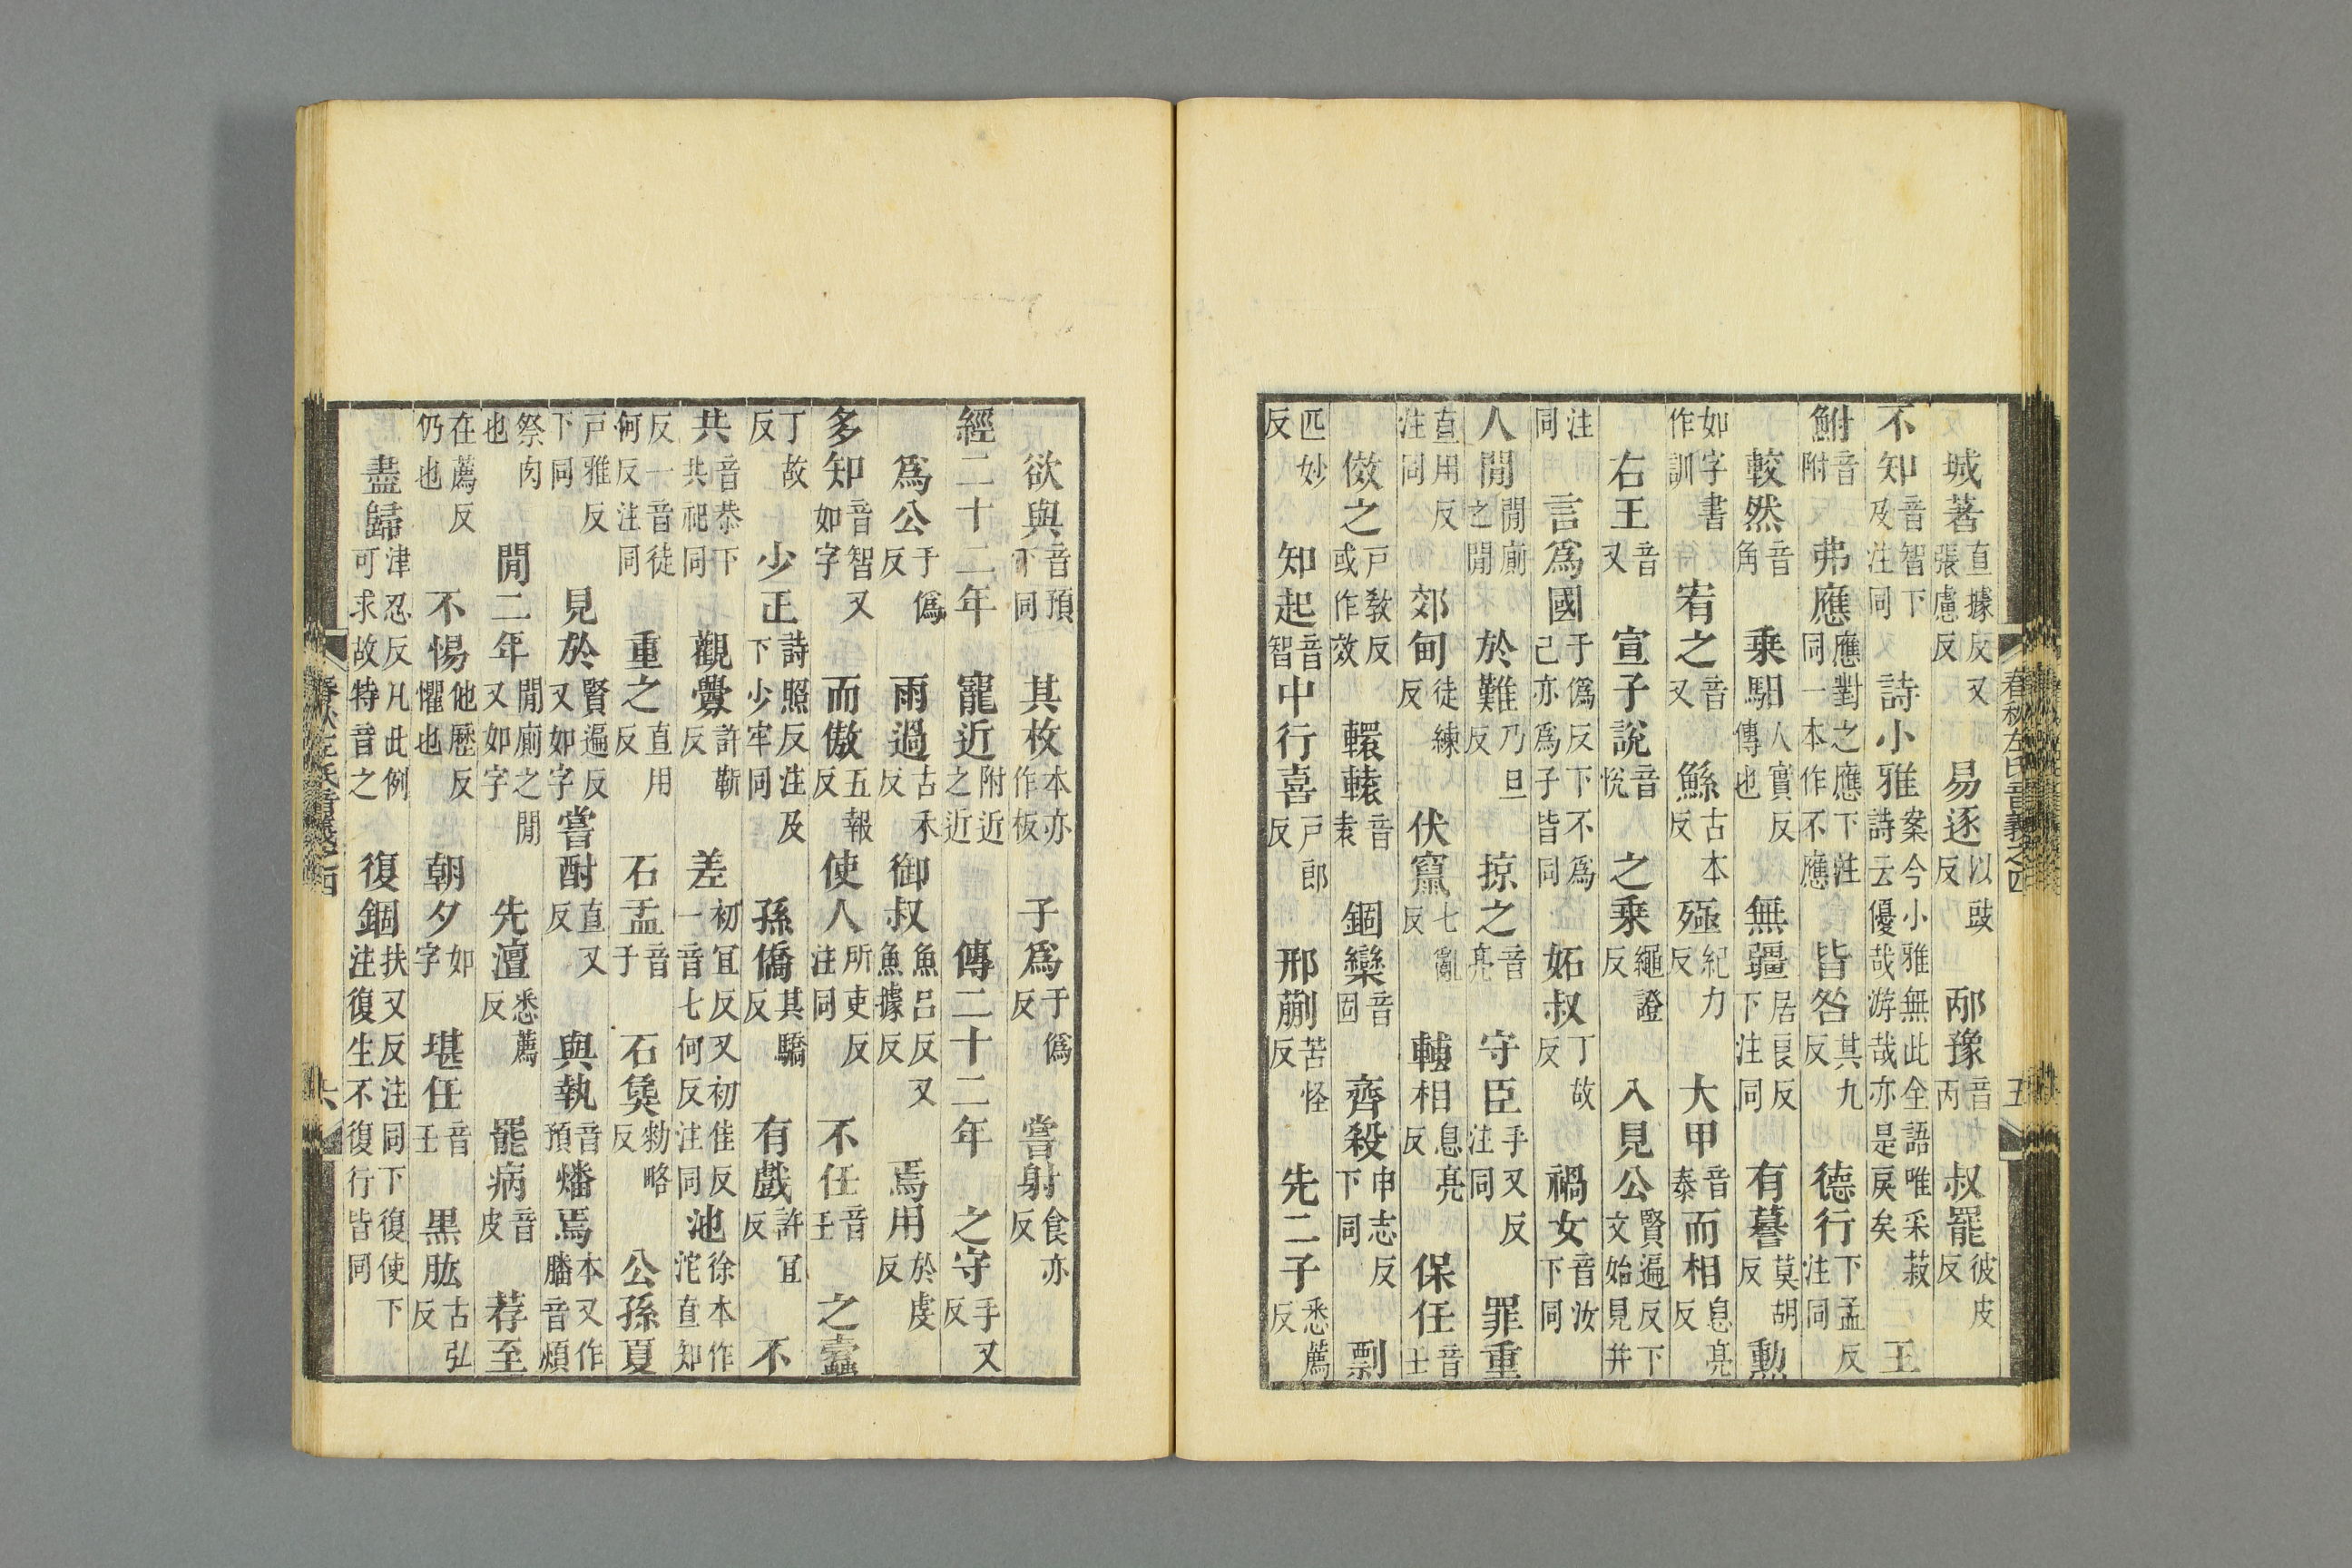 城著直據反又張慮反 易逐以豉反 邴豫音丙 叔罷彼皮反
不知音智下及注同 詩小雅案今小雅無此全語唯采菽詩云優哉游哉亦是戾矣 王
鮒音附 弗應應對之應下注同一本作不應 皆咎其九反 德行下孟反注同
較然音角 乗馹人實反傳也 無疆居良反下注同 有謩莫胡反 勳
如字書作訓 宥之音又 鯀古本反 殛紀力反 大甲音泰 而相息亮反
右王音又 宣子說音悅 之乗繩證反 入見公賢遍反下文始見幷
注同 言爲國于僞反下不爲己亦爲子皆同 妬叔丁故反 禍女音汝下同
人閒閒廁之閒 於難乃旦反 掠之音亮 守臣手又反注同 罪重
直用反注同 郊甸徒練反 伏竄七亂反 輔相息亮反 保任音壬
傚之戸敎反或作效 轘轅音袁 錮欒音固 齊殺申志反下同 剽
匹妙反 知起音智 中行喜戸郎反 邢蒯苦怪反 先二子悉薦反
春秋左氏音義之四 五
欲與音預下同 其枚本亦作板 子爲于僞反 嘗射食亦反
經二十二年 寵近附近之近 傳二十二年 之守手又反
爲公于僞反 雨過古禾反 御叔魚呂反又魚據反 焉用於虔反
多知音智又如字 而傲五報反 使人所吏反注同 不任音壬 之蠹
丁故反 少正詩照反注及下少牢同 孫僑其驕反 有戲許冝反 不
共音恭下共祀同 觀釁許靳反 差初冝反又初佳反一音七何反注同 池徐本作沱直知
反一音徒何反注同 重之直用反 石盂音于 石㚟勑略反 公孫夏
戸雅反下同 見於賢遍反又如字 嘗酎直又反 與執音預 燔焉本又作膰音煩
祭肉也 閒二年閒廁之閒又如字 先澶悉薦反 罷病音皮 荐至
在薦反仍也 不惕他歷反懼也 朝夕如字 堪任音壬 黒肱古弘反
盡歸津忍反凡此例可求故特音之 復錮扶又反注同下復使下注復生不復行皆同
春秋左氏音義之四 六